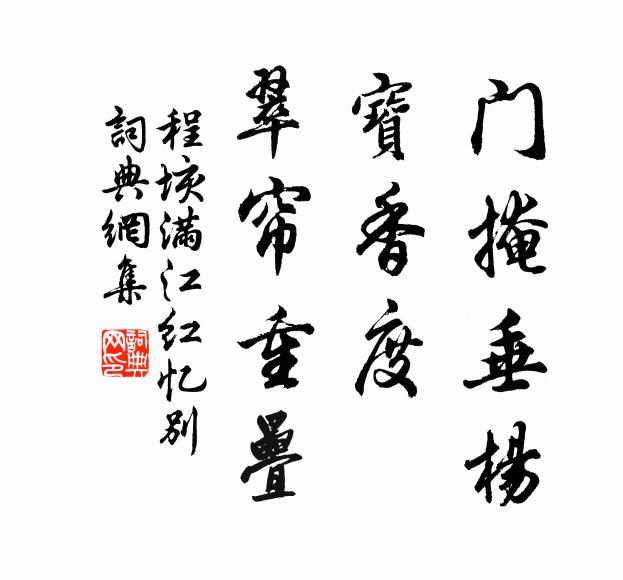 门掩垂楊
寶香度
翠帘重疊
程垓满江红忆别
詞典網集
詞典
网印